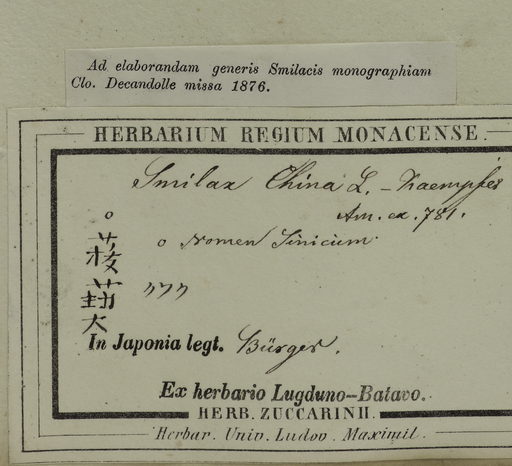 Ad elaborandam generis Smilacis monographiam
Clo. Decandolle missa 1876.
HERBARIUM REGIUM MONACENSE.
Smilax China L. - Kaempfer
Am. ex. 781.
o
o Nomen Sinicum
In Japonia legt. Bürger.
Ex herbario Lugduno-Batavo.
HERB. ZUCCARINII.
Herbar. Univ. Ludov. Maximil.